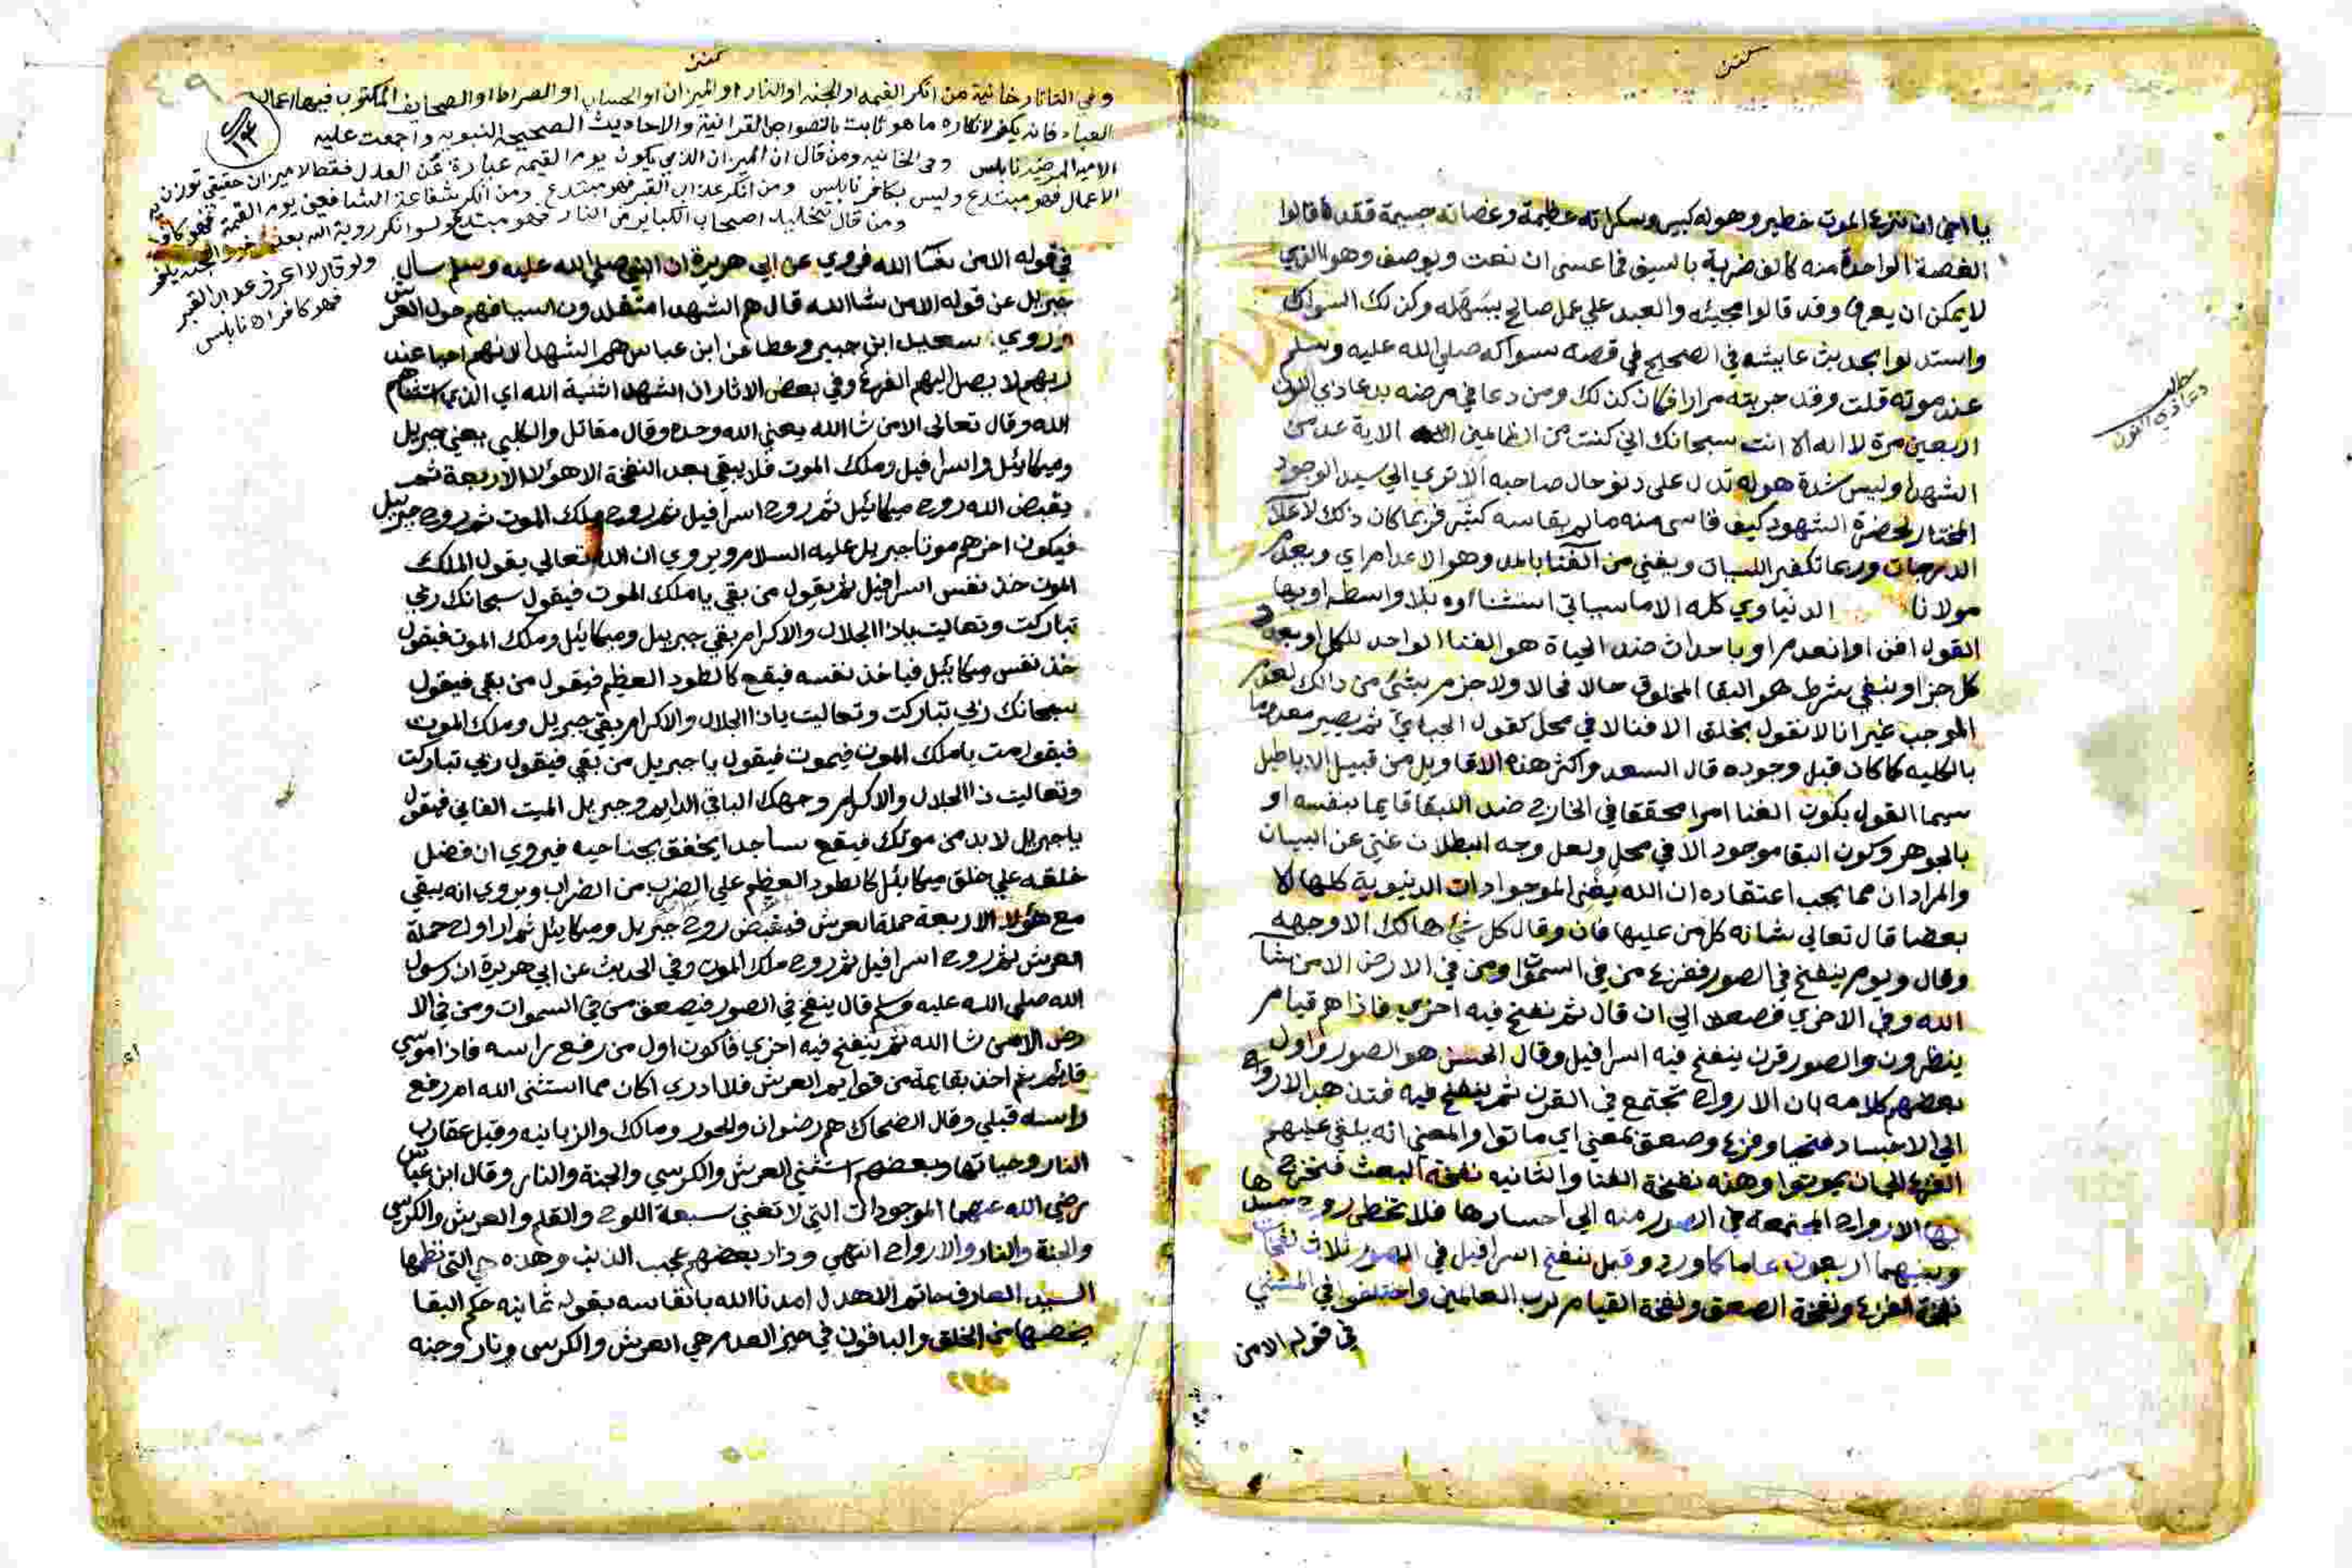 يا اخي ان نزع الموت خطير وهوله كبير وسكراته عظيمة وغصاته جسيمة فقد قالوا
الغصة الواحدة منه كالف ضربة بالسيف فما عسى ان نعت ويوصف وهو الذي
لا يمكن ان يعرف وقد قالوا مجيئه والعبد علي عمل صالح يسهله وكذلك السواك
واستدلوا بحديث عايشه في الصحيح في قصه سواكه صلي الله عليه وسلم
عند موته قلت وقد جربته مرارا فكان كذلك ومن دعا في مرضه بدعا ذي النون
اربعين مرة لا اله الا انت سبحانك اني كنت من الظالمين الاية عد من
الشهدا وليس شدة هوله تدل على دنو حال صاحبه الا تري الي سيد الوجود
المختار لحضرة الشهود كيف قاسى منه ما لم يقاسه كثير فربما كان ذلك لاعلا
الدرجات وربما تكفير السيات ويفني من الفنا بالمد وهو الاعدام اي ويعدم
مولانا الدنياوي كله الا ما سياتي استثناوه بلا واسطه او بها
القول افن او انعدم او باحداث ضد الحياة هو الفنا الواحد للكل او بعدد
كل جزا وينفي شرط هو البقا المخلوق حالا فحالا ولا جزم بشئ من ذالك لعدم
الموجب غير انا لا نقول بخلق الا فنا لا في محل كقول الجباي ثم يصير معدوما
بالكليه كما كان قبل وجوده قال السعد واكثر هذه الاقاويل من قبيل الاباطيل
سيما القول بكون الفنا امرا محققا في الخارج ضد للبقا قايما بنفسه او
بالجوهر وكون البقا موجود الا في محل ولعل وجه البطلان غني عن البيان
والمراد ان مما يجب اعتقاده ان الله يفني الموجودات الدنيوية كلها لا
بعضا قال تعالي شانه كل من عليها فان وقال كل شئ هالك الا وجهه
وقال ويوم ينفخ في الصور ففزع من في السموات ومن في الارض الا من شا
الله وفي الاخري فصعق الي ان قال ثم نفخ فيه اخري فاذا هم قيام
ينظرون والصور قرن ينفخ فيه اسرافيل وقال الحسن هو الصور واول
بعضهم كلامه بان الارواح تجتمع في القرن ثم ينفخ فيه فتذهب الارواح
الي الاجساد فتحيا وفزع وصعق بمعني اي ماتوا والمعني انه يلقي عليهم
الفزع الي ان يموتوا وهذه نفخة الفنا والثانيه نفخة البعث فتخرج
بها الارواح المجتمعة في الصور منه الي اجسادها فلا تخطي روح جسدها
وبينهما اربعون عاما كما ورد وقيل ينفخ اسرافيل في الصور ثلاث نفخات
نفخة الفزع ونفخة الصعق ونفخة القيام لرب العالمين واختلفوا في المستثني
في قوله الا من
مطلب
دعا ذي النون
وفي التاتارخانية من انكر القيمه او الجنه او النار او الميزان او الحساب او الصراط او الصحايف المكتوب فيها اعمال
العباد فانه يكفر لانكاره ما هو ثابت بالنصواص القرانية والاحاديث الصحيحه النبويه واجمعت عليه
الامه المرضيه نابلس وفي الخانيه ومن قال ان الميزان الذي يكون يوم القيمه عبارة عن العدل فقط لا ميزان حقيقي توزن به
الاعمال فهو مبتدع وليس بكافر نابلس ومن انكر عذاب القبر فهو مبتدع ومن انكر شفاعة الشافعين يوم القيمة فهو كافر
ومن قال بتخليد اصحاب الكباير في النار فهو مبتدع ولو انكر روية الله بعد دخول الجنه يكفر
ولو قال لا اعرف عذاب القبر
فهو كافر اه نابلس
في قوله الا من شا الله فروي عن ابي هريرة ان النبي صلي الله عليه وسلم سال
جبريل عن قوله الا من شا الله قال هم الشهدا متقلدون اسيافهم حول العرش
وروي سعيد ابن جبير وعطا عن ابن عباس هم الشهدا لانهم احيا عند
ربهم لا يصل اليهم الفزع وفي بعض الاثار ان الشهدا ثنية الله اي الذي استثناهم
الله وقال تعالى الا من شا الله يعني الله وحده وقال مقاتل والكلبي يعني جبريل
وميكائيل واسرافيل وملك الموت فلا يبقي بعد النفخة الا هؤلا الاربعة ثم
يقبض الله روح ميكائيل ثم روح اسرافيل ثم روح ملك الموت ثم روح جبريل
فيكون اخرهم موتا جبريل عليه السلام ويروي ان الله تعالي يقول لملك
الموت خذ نفس اسرافيل ثم يقول من بقي يا ملك الموت فيقول سبحانك ربي
تباركت وتعاليت ياذا الجلال والاكرام بقي جبريل وميكائيل وملك الموت فيقول
خذ نفس ميكائيل فياخذ نفسه فيقع كالطود العظيم فيقول من بقي فيقول
سبحانك ربي تباركت وتعاليت ياذا الجلال والاكرام بقي جبريل وملك الموت
فيقول مت يا ملك الموت فيموت فيقول يا جبريل من بقي فيقول ربي تباركت
وتعاليت ذا الجلال والاكرام وجهك الباقي الدايم وجبريل الميت الفاني فيقول
يا جبريل لا بد من موتك فيقع ساجدا يخفق بجناحيه فيروي ان فضل
خلقه علي خلق ميكائيل كالطود العظيم علي الضرب من الضراب ويروي انه يبقي
مع هؤلا الاربعة حملة العرش فيقبض روح جبريل وميكائيل ثم ارواح حملة
العرش ثم روح اسرافيل ثم روح ملك الموت وفي الحديث عن ابي هريرة ان رسول
الله صلى الله عليه وسلم قال ينفخ في الصور فيصعق من في السموات ومن في الا
رض الا من شا الله ثم ينفخ فيه اخري فاكون اول من رفع راسه فاذا موسي
قايم اخذ بقايمة من قوايم العرش فلا ادري اكان مما استثنى الله ام رفع
راسه قبلي وقال الضحاك هم رضوان والحور ومالك والزبانيه وقيل عقارب
النار وحياتها وبعضهم استثني العرش والكرسي والجنة والنار وقال ابن عباس
رضي الله عنهما الموجودات التي لا تفني سبعة اللوح والقلم والعرش والكرسي
والجنة والنار والارواح انتهي وزاد بعضهم عجب الذنب وهذه هي التي نظمها
السيد العارف حاتم الاهدل امدنا الله بانفاسه بقوله ثمانيه حكم البقا
يخصها من الخلق والباقون في حيز العدم هي العرش والكرسي ونار وجنه